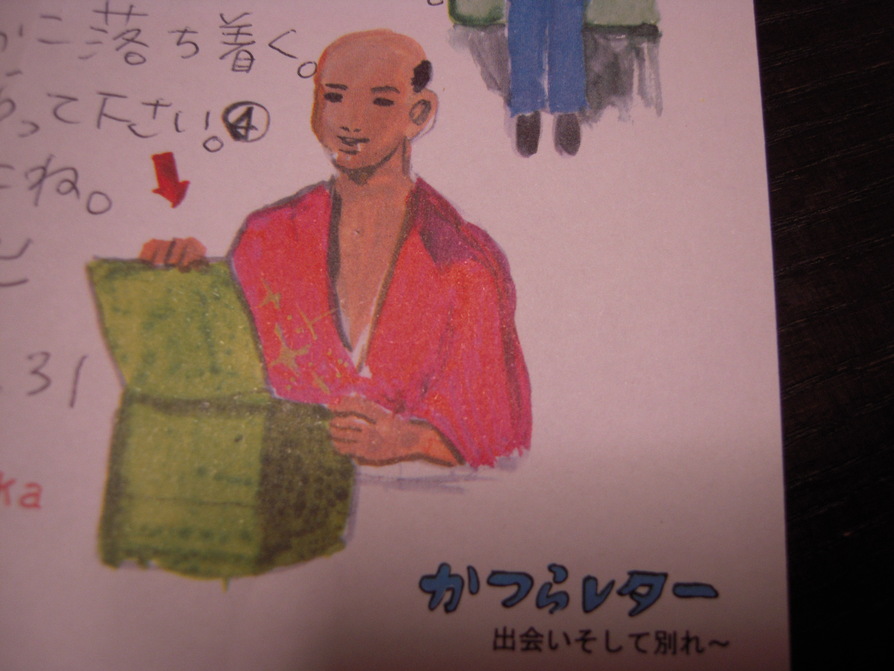 に落ち着く。
って下さい。④
ね。
31
ka
かつらレター
出会いそして別れ～